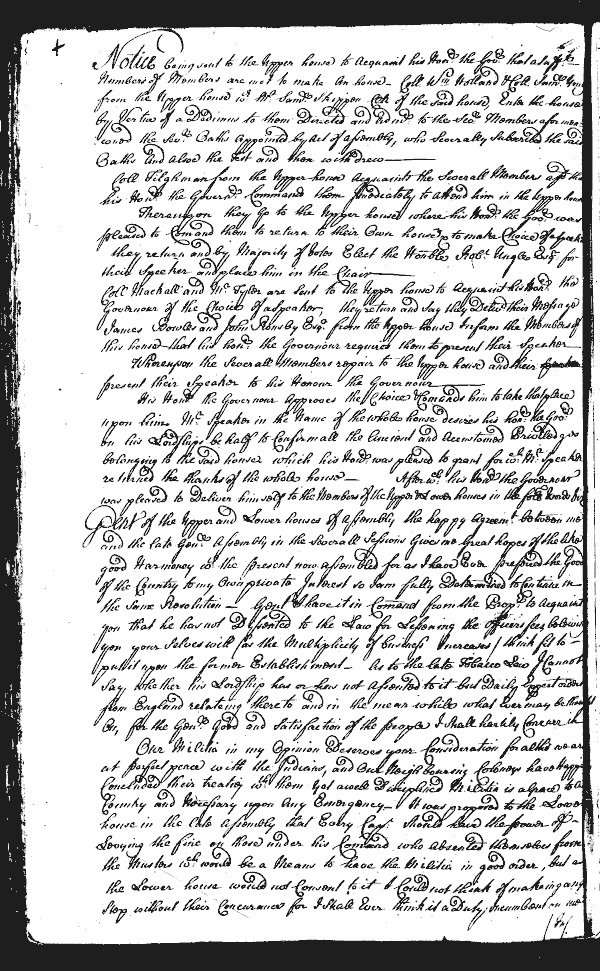 Notice being sent to the Upper house to Acquaint his Honr. the Govr. that a suffict.
Numbers of Members are met to make An house. Coll. Wm. Holland & Coll. Saml.
from the Upper house wt. Mr. Saml. Skippon Clk of the said house, Enter the house
by Vertue of a Dedimus to them Directed and Admr. to the Sevl. Members afore men
coned the Sevl. Oaths Appointed by Act of Assembly, who Severally Subscribed the said
Oaths and Also the Test and then withdrew
Coll Tilghman from the Upper house Acquaints the Severall Members of that
his Honr. the Governr. Commands them Imediately to attend him in the Upper house
Thereupon they Go to the Upper house where his Honr. the Govr. was
pleased to Comand them to return to their Own house & to make Choice of a Speaker
they return and by Majority of Votes Elect the Honble. Robt. Ungle Esqr. for
their Speaker and place him in the Chair
Coll Mackall and Mr. Tyler are sent to the Upper house to Acquaint his Honr. the
Governour of the Choice of a Speaker, they return and say they Deliverd their Message
James Bowles and John Rousby Esqr. from the Upper house Inform the Members of
this house that his honr. the Governour requires them to present their Speaker
Whereupon the Severall Members repair to the Upper house and their
present their Speaker to his Honour the Governour
His Honr. the Governour Approves the Choice & Comands him to take that place
upon him. Mr. Speaker in the Name of the whole house desires his honr. the Govr.
on his Lordships behalf to Confirm all the Ancient and Accustomed Priviledges
belonging to the said house which his Honr. was pleased to grant for wch. Mr. Speaker
returned the thanks of the whole house Afterwds. his Honr. the Governour
was pleased to Deliver himself to the Members of the Upper & Lower houses in the
Gent. of the Upper and Lower houses of Assembly, the happy Agreemt. between me
and the late Genl. Assembly in the Severall Sessions Gives me Great hopes of the like
good Harmony wt. the present now Assembled for as I have Ever prefered the Good
of the Country to my Own private Interest so I am fully Determined to Continue in
the Same Resolution Gent. I have it in Comand from the Propry. to Acquaint
you that he has not Dissented to the Law for Lessening the Officers fees, Leaving
you your Selves will (as the Multiplicity of business Increases) think fit to
put it upon the former Establishment. As to the late Tobacco Law I Cannot
Say, whether his Lordship has or has not Assented to it but Daily Expect orders
from England relateing thereto and in the mean while what Ever may be thought
On, for the Genl. Good and Satisfaction of the people I shall hartily Concurr in
Our Militia in my Opinion Deserves your Consideration for altho we are
at perfect peace with the Indians, and Our Neighbouring Colonys have happily
Concluded their treaty wt. them yet a well Disciplined Militia is a grace to a
Country and Necessary upon Any Emergency. It was proposed to the Lower
house in the late Assembly that Every Capt. Should have the power of
Levying the fine on those under his Comand who absented themselves from
the Musters wch. would be a Means to have the Militia in good order, but as
the Lower house would not Consent to it I Could not think of makeing any
Step without their Concurance for I shall Ever think it a Duty incumbent on me